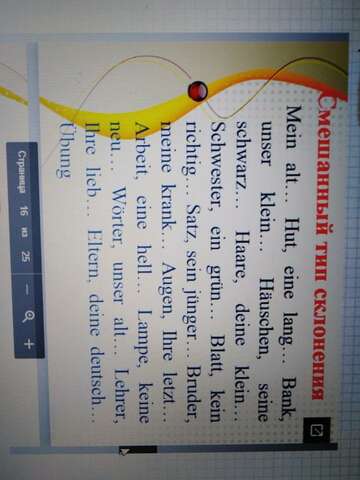 Смешанный тип склонения
Mein alt… Hut, eine lang… Bank,
unser klein… Häuschen, seine
schwarz… Haare, deine klein…
Schwester, ein grün… Blatt, kein
richtig… Satz, sein jünger… Bruder,
meine krank… Augen, Ihre letzt…
Arbeit, eine hell… Lampe, keine
neu… Wörter, unser alt… Lehrer,
Ihre lieb… Eltern, deine deutsch…
Übung
Страница 16 из 25